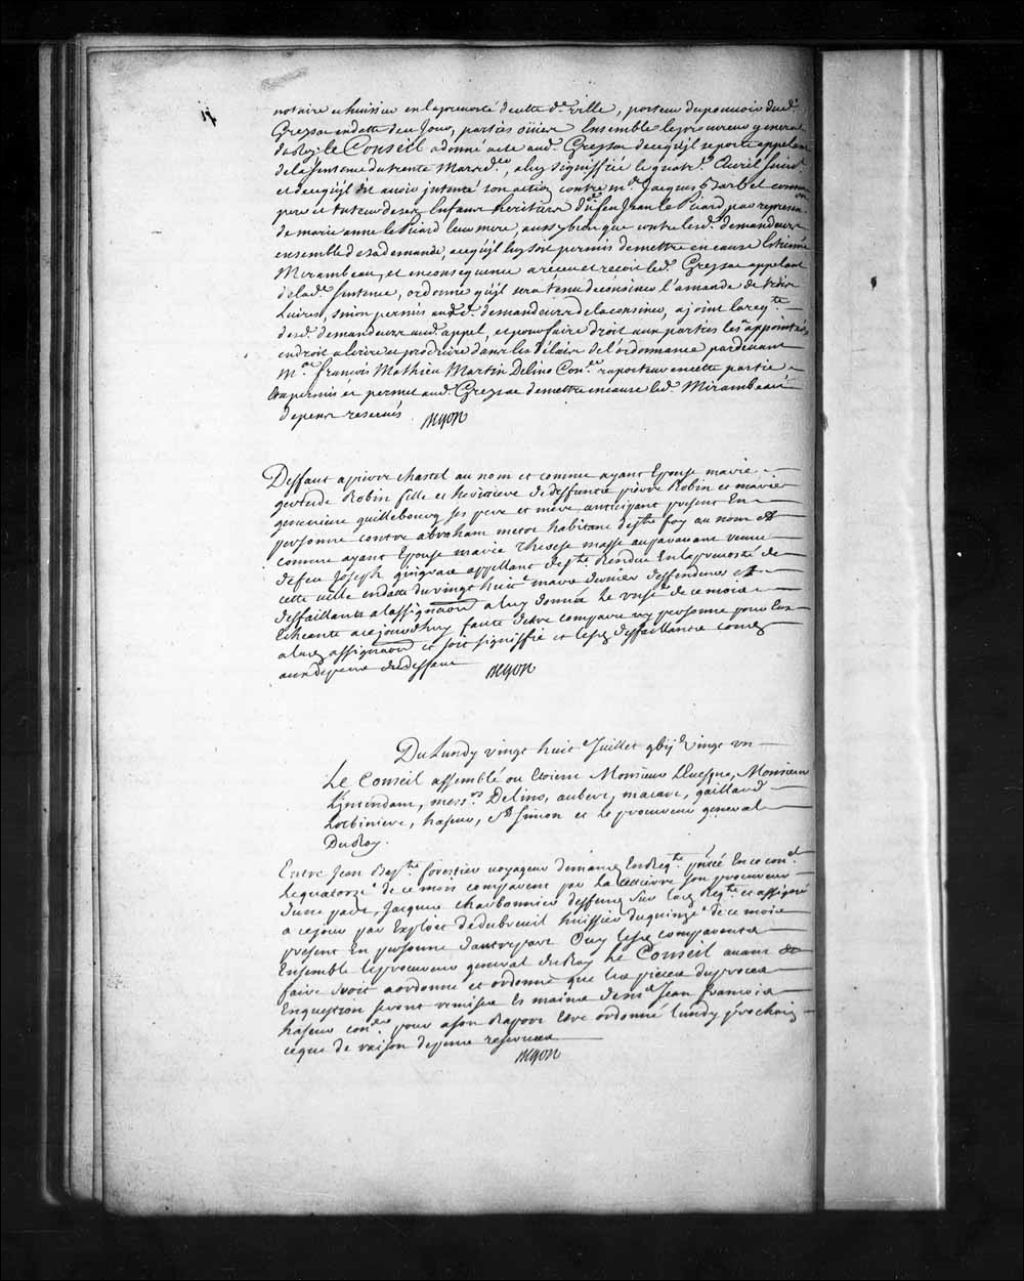 notaire et huissier en la prevosté de cette d.e ville, porteur du pouvoir dud.
Gressac en datte de ce Jour, parties oüies Ensemble le procureur general
du Roy, le Conseil a donné acte aud. Gressac de ce qu'il se porte appelant
de la sentence du trente Mars d.er, a luy signiffiée le quatr.e Avril suiv.t
et de ce qu'il dit avoir intenté son action contre m.e Jacques Barbel comme
pere et tuteur de ses Enfans heritiers du feu Jean le Picard, par represen
de marie anne le Picard leur mere, aussy bien que contre lesd. demandeurs
ensemble de sa demande, a ce qu'il luy soit permis de mettre en cause Estienne
Mirambeau, et en consequence a receu et recoit led. Gressac appelant
de lad. sentence, ordonne qu'il sera tenu de consiner l'amande de trois
Livres, sinon permis aud. demandeurs de la consiner, a joint la req.te
desd. demandeurs aud. appel, et pour faire droit aux parties les a appointées
en droit a Ecrire et produire dans les delais de l'ordonnance pardevant
M.re François Mathieu Martin Delino Con.er raporteur en cette partie
a permis et permet aud. Gressac de mettre en cause led. Mirambeau
depens reservés
Begon
Deffaut a pierre chastel au nom et comme ayant Epousé marie
gertrude Robin fille et heritiere de deffunts pierre Robin et marie
genevieve guillebourg ses pere et mere anticipant present En
personne contre abraham metot habitant de s.te foy au nom et
comme ayant Epousé marie therese masse auparavant veuve
de feu Joseph appellant de s.ce Rendue En la prevosté de
cette ville en datte du vingt huit.e mars dernier deffendeur et
deffaillants a l'assignaõn a luy donnée le unz.e de ce mois
Echeante a cejourd'huy faute d'estre comparu ny personne pour Eux
a lad. assignaõn et soit signiffié et lesd. deffaillants cond.ez
aux depens du deffaut
Begon
Du Lundy vingt huit.e Juillet gbij.c vingt un
Le Conseil assemblé ou Etoient Monsieur L'Evesque, Monsieur
L'Intendant, mess.rs Delino, aubert, macart, gaillard
Lotbiniere, haseur, S.t Simon et le procureur general
Du Roy.
Entre Jean Bap.te forestier voyageur demand.r En Req.te pñtée En ce con.el
le quatorz.e de ce mois comparant par la cetiere son procureur
d'une part, Jacques charbonnier deffend.r Sur lad. Req.te et assigné
a ce jour par Exploit de dubreuil huissier du quinz.e de ce mois
present En personne d'autre part Ouy lesd. comparants
Ensemble le procureur general du Roy le Conseil avant de
faire droit a ordonné et ordonne que les pieces du procez
En question seront remises Es mains de m.e Jean francois
haseur con.er pour a son Raport Estre ordonné lundy prochain
ce que de raison depens reservez
Begon